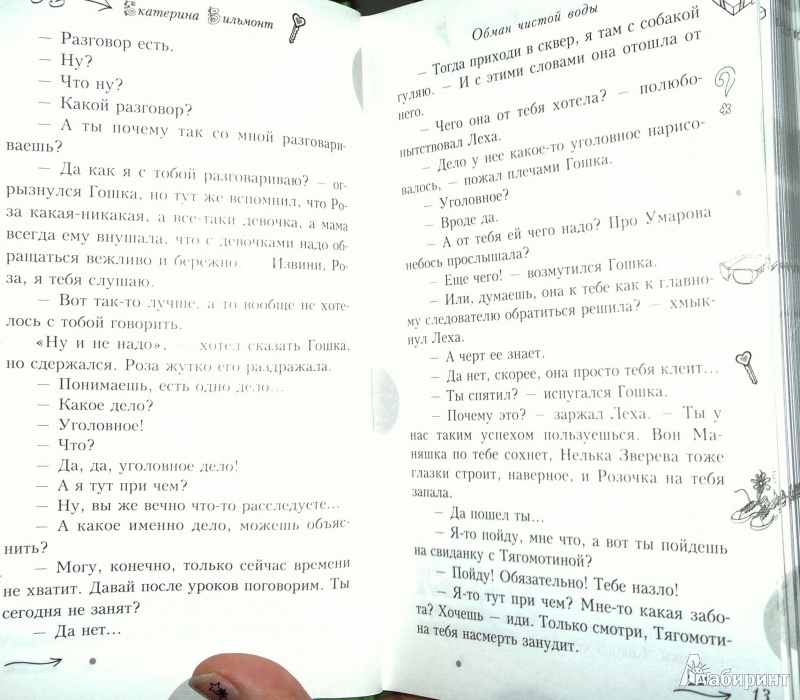 Екатерина Вильмонт
— Разговор есть.
— Ну?
— Что ну?
— Какой разговор?
— А ты почему так со мной разговари-
ваешь?
— Да как я с тобой разговариваю? — ог-
рызнулся Гошка, но тут же вспомнил, что Ро-
за какая-никакая, а все-таки девочка, а мама
всегда ему внушала, что с девочками надо об-
ращаться вежливо и бережно. Извини, Ро-
за, я тебя слушаю.
— Вот так-то лучше, а то вообще не хоте-
лось с тобой говорить.
«Ну и не надо», — хотел сказать Гошка,
но сдержался. Роза жутко его раздражала.
— Понимаешь, есть одно дело...
— Какое дело?
— Уголовное!
— Что?
— Да, да, уголовное дело!
— А я тут при чем?
— Ну, вы же вечно что-то расследуете...
— А какое именно дело, можешь объяс-
нить?
— Могу, конечно, только сейчас времени
не хватит. Давай после уроков поговорим. Ты
сегодня не занят?
— Да нет...
Обман чистой воды
— Тогда приходи в сквер, я там с собакой
гуляю. — И с этими словами она отошла от
него.
— Чего она от тебя хотела? — полюбо-
пытствовал Леха.
— Дело у нее какое-то уголовное нарисо-
валось, — пожал плечами Гошка.
— Уголовное?
— Вроде да.
— А от тебя ей чего надо? Про Умарова
небось прослышала?
— Еще чего! — возмутился Гошка.
— Или, думаешь, она к тебе как к главно-
му следователю обратиться решила? — хмык-
нул Леха.
— А черт ее знает.
— Да нет, скорее, она просто тебя клеит...
— Ты спятил? — испугался Гошка.
— Почему это? — заржал Леха. — Ты у
нас таким успехом пользуешься. Вон Ма-
няшка по тебе сохнет, Нелька Зверева тоже
глазки строит, наверное, и Розочка на тебя
запала.
— Да пошел ты...
— Я-то пойду, мне что, а вот ты пойдешь
на свиданку с Тягомотиной?
— Пойду! Обязательно! Тебе назло!
— Я-то тут при чем? Мне-то какая забо-
та? Хочешь — иди. Только смотри, Тягомоти-
на тебя насмерть занудит.
13
Лабиринт